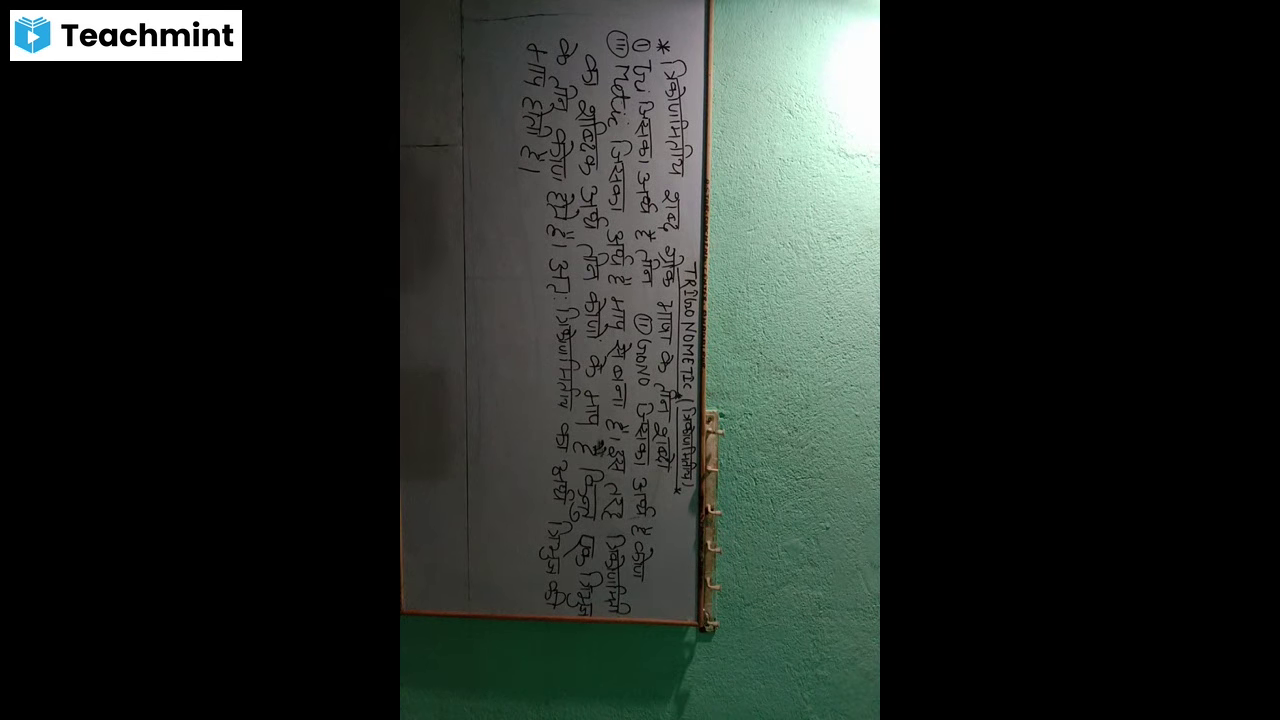 Teachmint
TRIGONOMETIC (त्रिकोणमितीय)
* त्रिकोणमितीय शब्द ग्रीक भाषा के तीन शब्दो
① Tri जिसका अर्थ है तीन ② GONO जिसका अर्थ है कोण
③ Metic जिसका अर्थ हैं माप से बना है। इस तरह त्रिकोणमिती
का शाब्दिक अर्थ तीन कोणो के माप है किन्तु एक त्रिभुज
के तीन कोण होते हैं। अतः त्रिकोणमितीय का अर्थ त्रिभुज की
माप होती हैं।